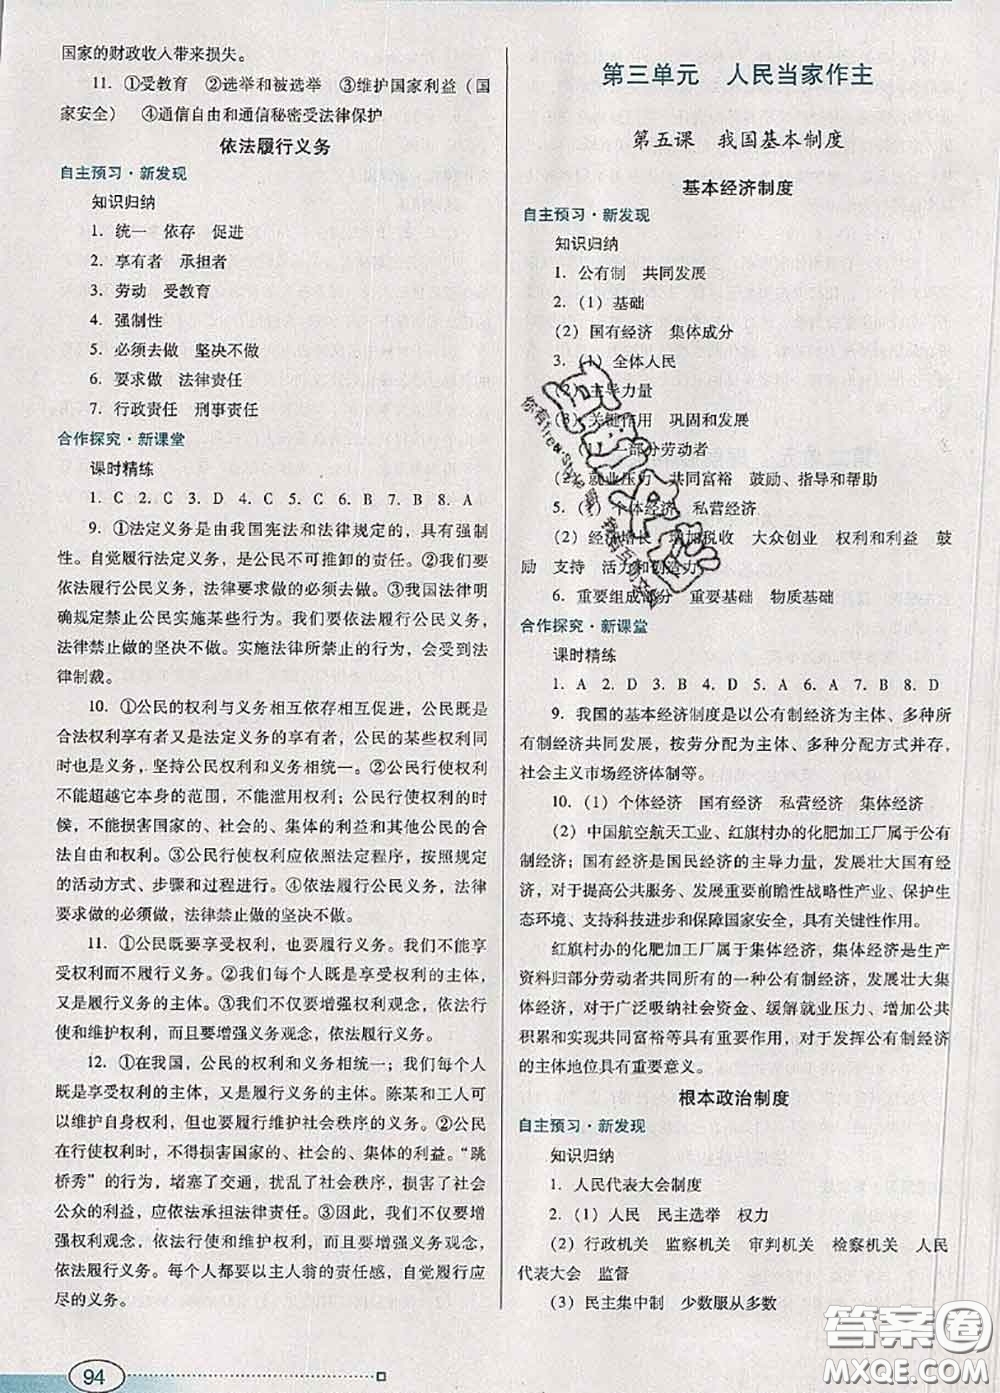 国家的财政收入带来损失。
11. ①受教育 ②选举和被选举 ③维护国家利益（国
家安全） ④通信自由和通信秘密受法律保护
依法履行义务
自主预习·新发现
知识归纳
1. 统一 依存 促进
2. 享有者 承担者
3. 劳动 受教育
4. 强制性
5. 必须去做 坚决不做
6. 要求做 法律责任
7. 行政责任 刑事责任
合作探究·新课堂
课时精练
1. C 2. C 3. D 4. C 5. C 6. B 7. B 8. A
9. ①法定义务是由我国宪法和法律规定的，具有强制
性。自觉履行法定义务，是公民不可推卸的责任。②我们要
依法履行公民义务，法律要求做的必须去做。③我国法律明
确规定禁止公民实施某些行为。我们要依法履行公民义务，
法律禁止做的坚决不做。实施法律所禁止的行为，会受到法
律制裁。
10. ①公民的权利与义务相互依存相互促进，公民既是
合法权利享有者又是法定义务的享有者，公民的某些权利同
时也是义务，坚持公民权利和义务相统一。②公民行使权利
不能超越它本身的范围，不能滥用权利；公民行使权利的时
候，不能损害国家的、社会的、集体的利益和其他公民的合
法自由和权利。③公民行使权利应依照法定程序，按照规定
的活动方式、步骤和过程进行。④依法履行公民义务，法律
要求做的必须做，法律禁止做的坚决不做。
11. ①公民既要享受权利，也要履行义务。我们不能享
受权利而不履行义务。②我们每个人既是享有权利的主体，
又是履行义务的主体。③我们不仅要增强权利观念，依法行
使和维护权利，而且要增强义务观念，依法履行义务。
12. ①在我国，公民的权利和义务相统一；我们每个人
既是享受权利的主体，又是履行义务的主体。陈某和工人可
以维护自身权利，但也要履行维护社会秩序的义务。②公民
在行使权利时，不得损害国家的、社会的、集体的利益。“跳
桥秀”的行为，堵塞了交通，扰乱了社会秩序，损害了社会
公众的利益，应依法承担法律责任。③因此，我们不仅要增
强权利观念，依法行使和维护权利，而且要增强义务观念，
依法履行义务。每个人都要以主人翁的责任感，自觉履行应
尽的义务。
94
第三单元 人民当家作主
第五课 我国基本制度
基本经济制度
自主预习·新发现
知识归纳
1. 公有制 共同发展
2.（1）基础
（2）国有经济 集体成分
3.（1）全体人民
（2）主导力量
（3）关键作用 巩固和发展
一部分劳动者
（2）就业压力 共同富裕 鼓励、指导和帮助
5.（1）个体经济 私营经济
（2）经济增长 增加税收 大众创业 权利和利益 鼓
励 支持 活力和创造力
6. 重要组成部分 重要基础 物质基础
合作探究·新课堂
课时精练
1. A 2. D 3. D 4. B 5. A 6. A 7. B 8. D
9. 我国的基本经济制度是以公有制经济为主体、多种所
有制经济共同发展，按劳分配为主体、多种分配方式并存，
社会主义市场经济体制等。
10.（1）个体经济 国有经济 私营经济 集体经济
（2）中国航空航天工业、红旗村办的化肥加工厂属于公有
制经济；国有经济是国民经济的主导力量，发展壮大国有经
济，对于提高公共服务、发展重要前瞻性战略性产业、保护生
态环境、支持科技进步和保障国家安全，具有关键性作用。
红旗村办的化肥加工厂属于集体经济，集体经济是生产
资料归部分劳动者共同所有的一种公有制经济，发展壮大集
体经济，对于广泛吸纳社会资金、缓解就业压力、增加公共
积累和实现共同富裕等具有重要作用，对于发挥公有制经济
的主体地位具有重要意义。
根本政治制度
自主预习·新发现
知识归纳
1. 人民代表大会制度
2.（1）人民 民主选举 权力
（2）行政机关 监察机关 审判机关 检察机关 人民
代表大会 监督
（3）民主集中制 少数服从多数
答案圈
MXQE.COM